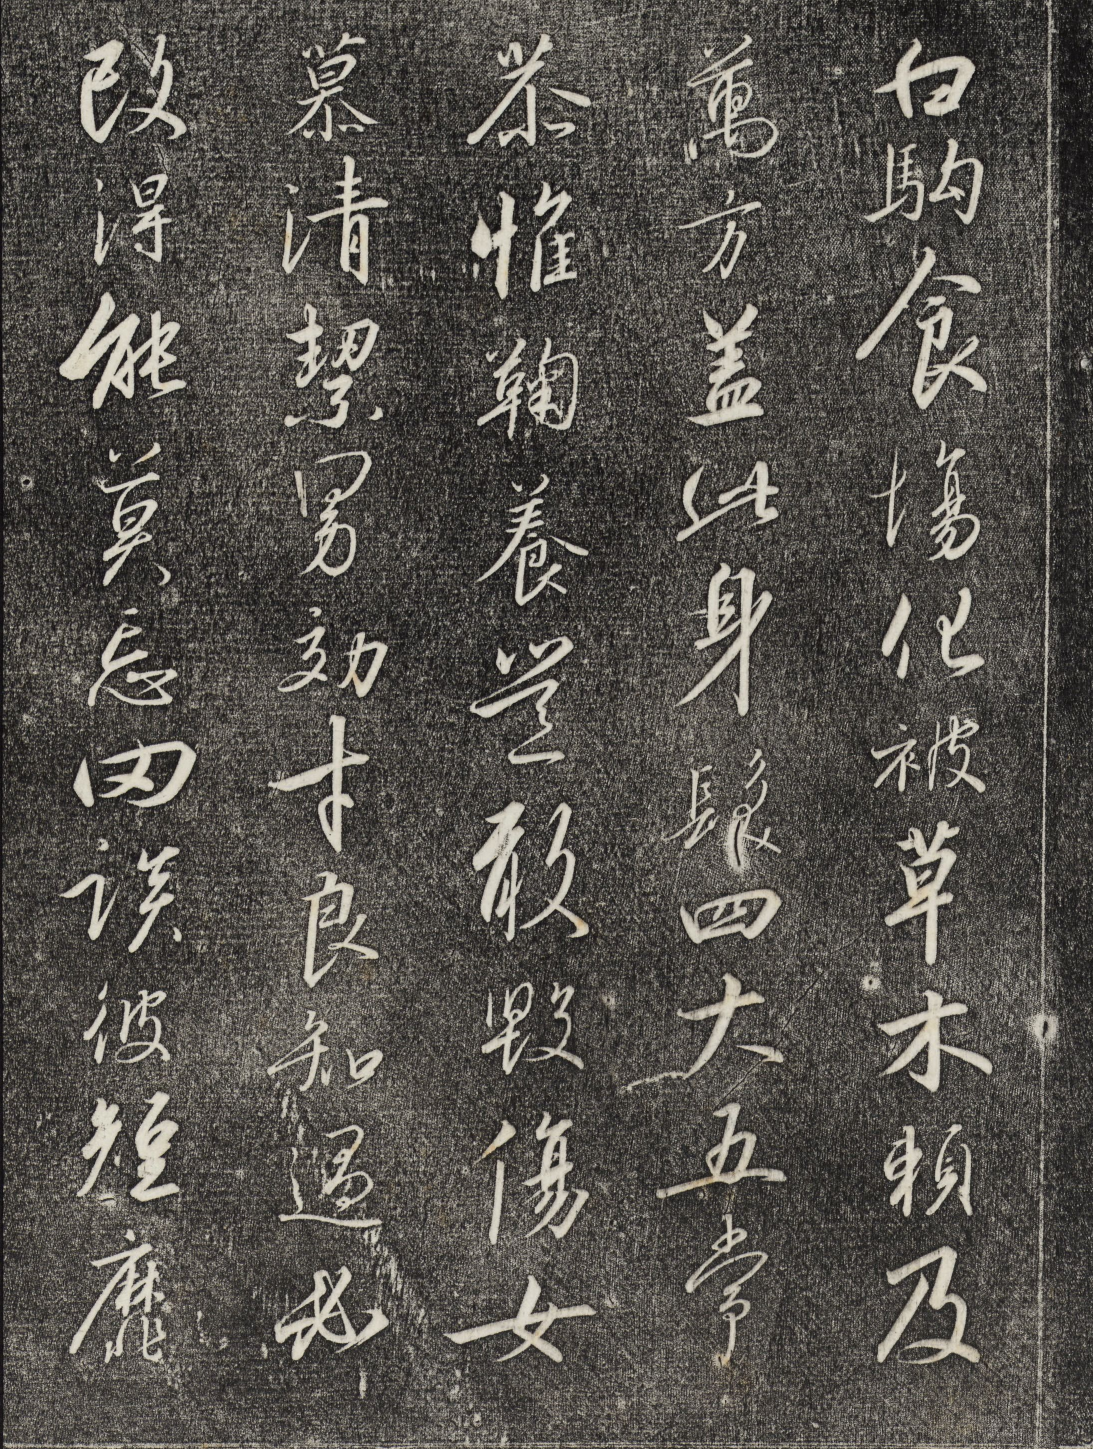 白駒食塲化被草木賴及
萬方盖此身髮四大五常
恭惟鞠養豈敢毀傷女
慕清絜男効才良知過必
改得能莫忘罔談彼短靡